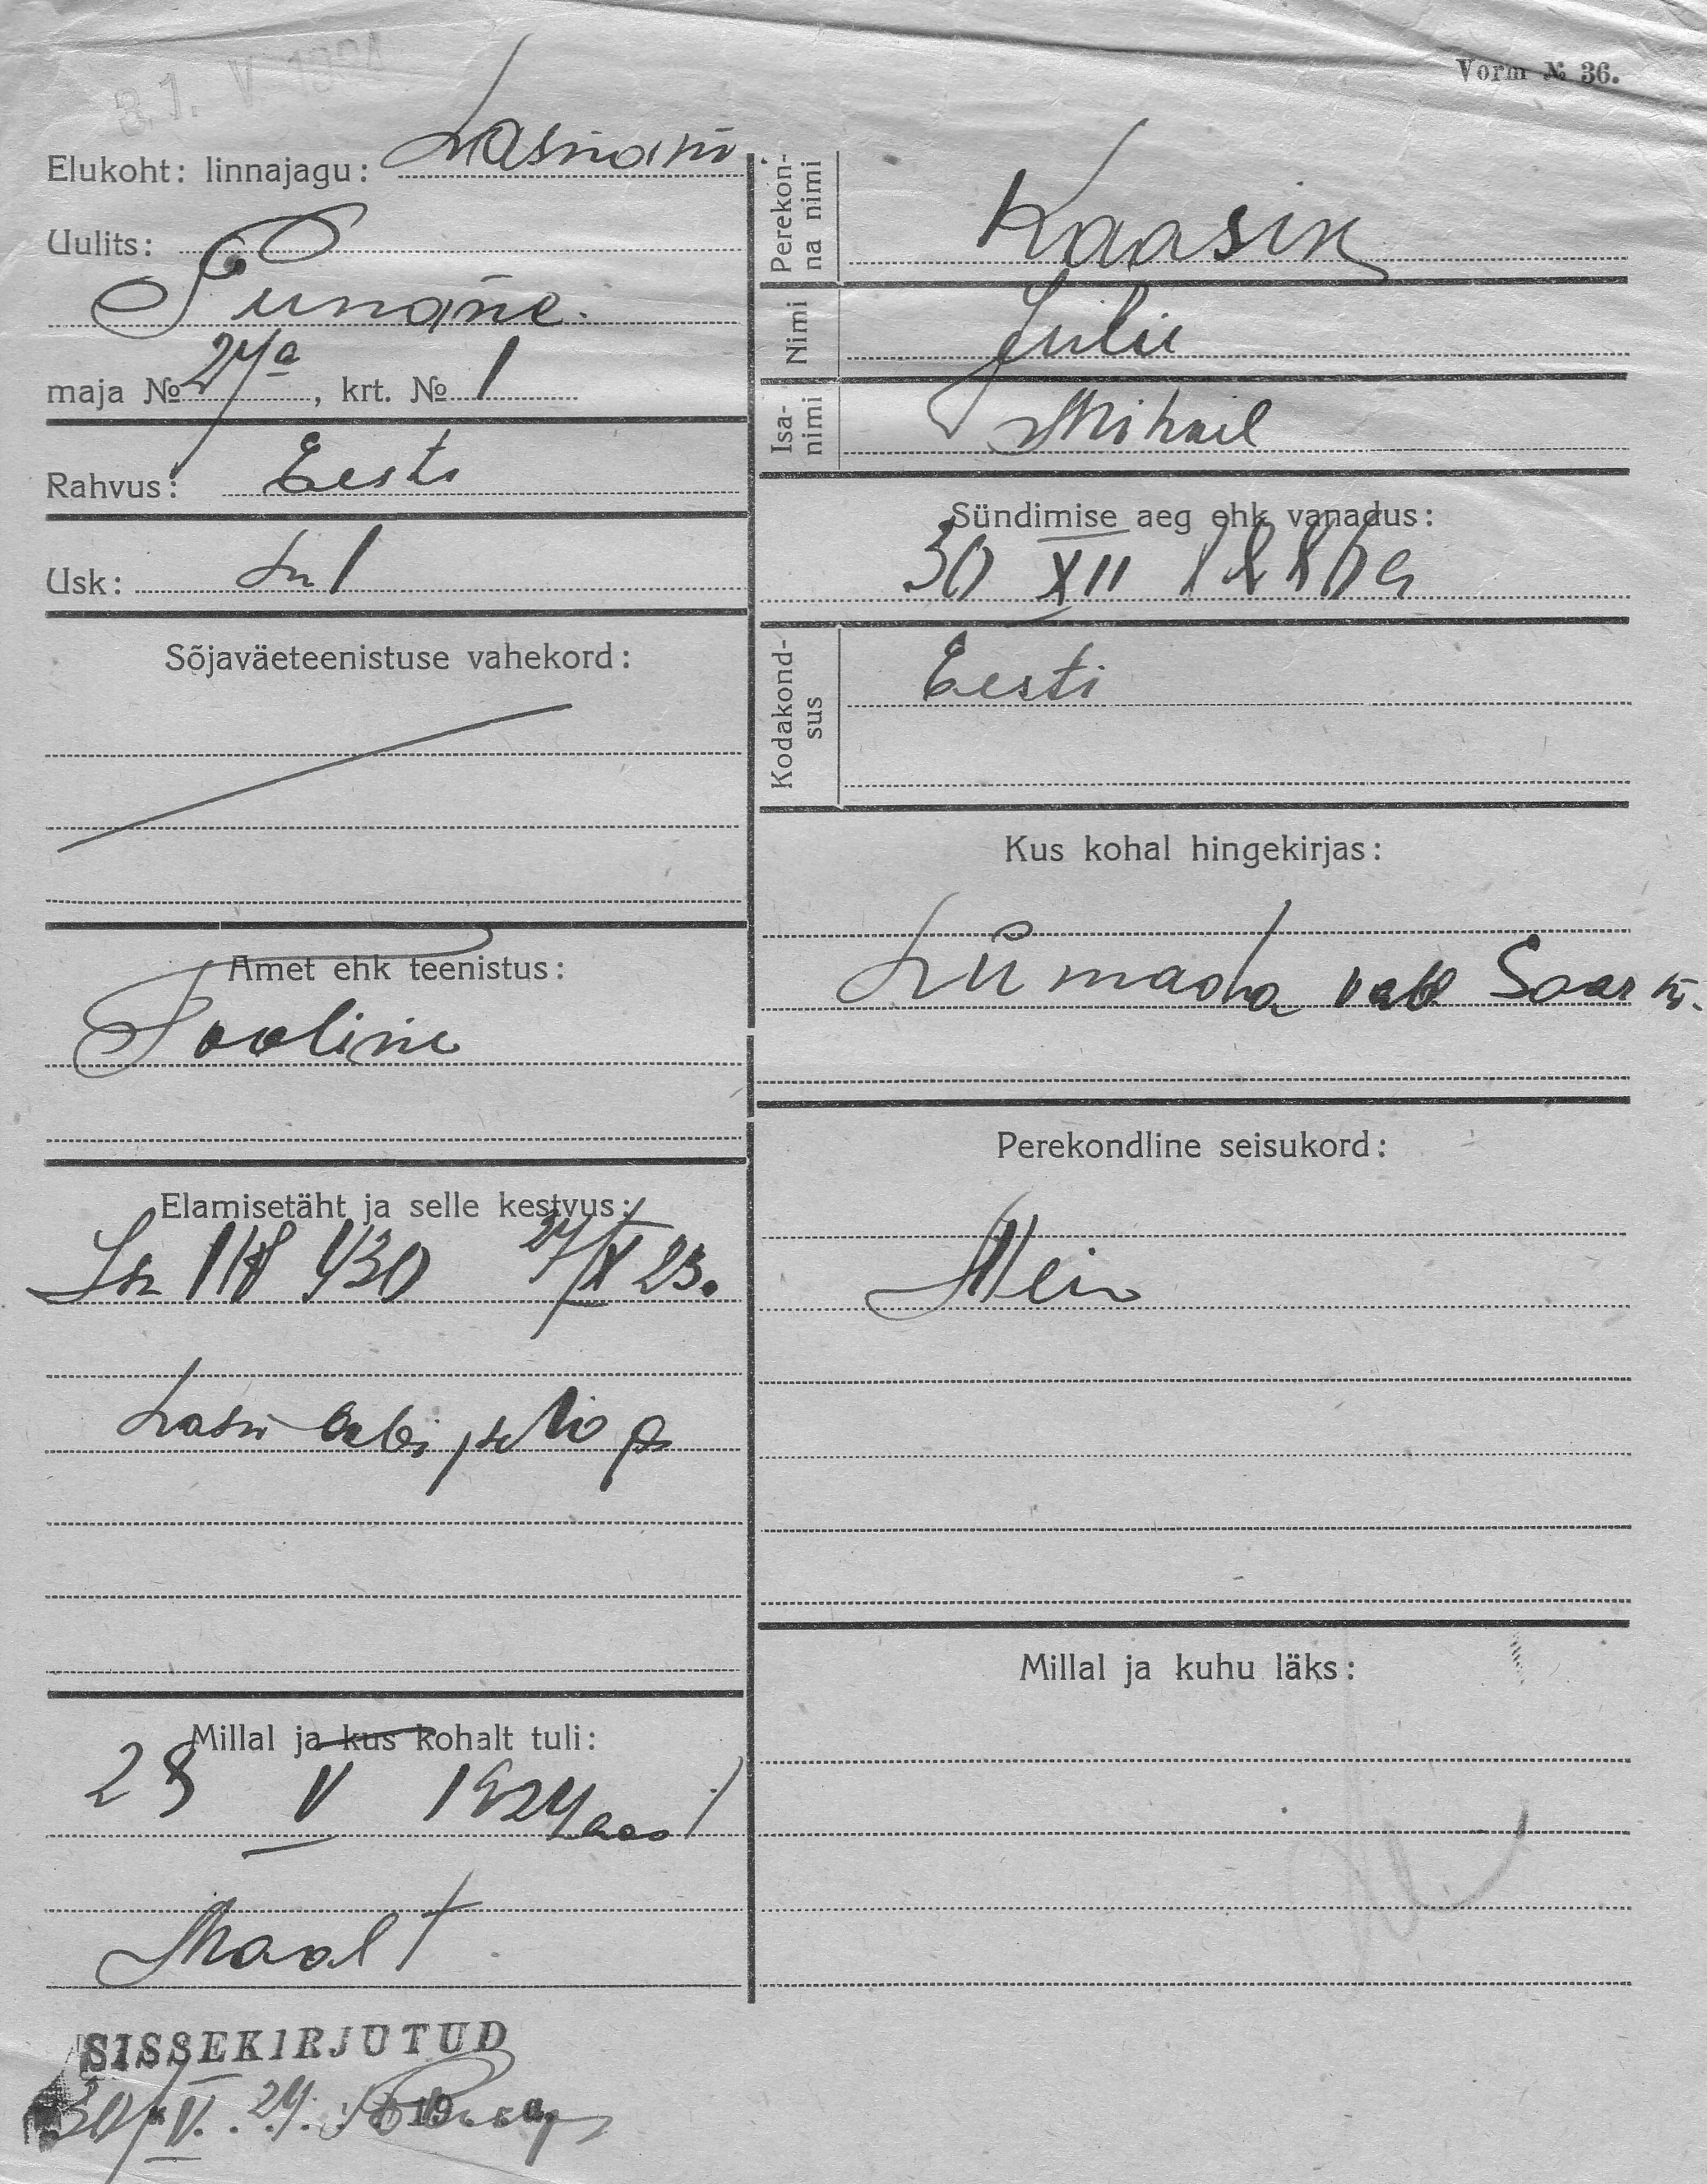 31. V 1924
Vorm № 36.
Elukoht: linnajagu: Lasnam.
Uulits:
Punane.
maja № 24a, krt. № 1
Rahvus: Eesti
Usk: Lu
Sõjaväeteenistuse vahekord:
Amet ehk teenistus:
Tööline
Elamisetäht ja selle kestvus:
430 24/IX 23.
Millal ja kus kohalt tuli:
28 V 1924
Maalt
SISSEKIRJUTUD
30/V. 24. 19 a.
Perekonna nimi Kaasik
Nimi Julie
Isanimi Mihail
Sündimise aeg ehk vanadus:
30 XII 1886 a
Kodakondsus Eesti
Kus kohal hingekirjas:
Liimada vald Saar
Perekondline seisukord:
Millal ja kuhu läks: